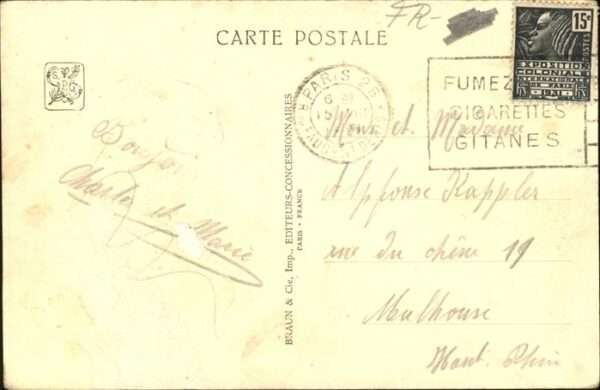 FR-
CARTE POSTALE
15c
POSTES
EXPOSITION
COLONIALE
INTERNATIONALE
DE PARIS
1931
S.P.G.
PARIS 26
6
15
FUMEZ
CIGARETTES
GITANES
Bonjour
Charles et Marie
BRAUN & Cie, Imp., EDITEURS-CONCESSIONNAIRES
PARIS - FRANCE
Mons et Madame
Alphonse Kappler
rue du chêne 19
Mulhouse
Haut. Rhin